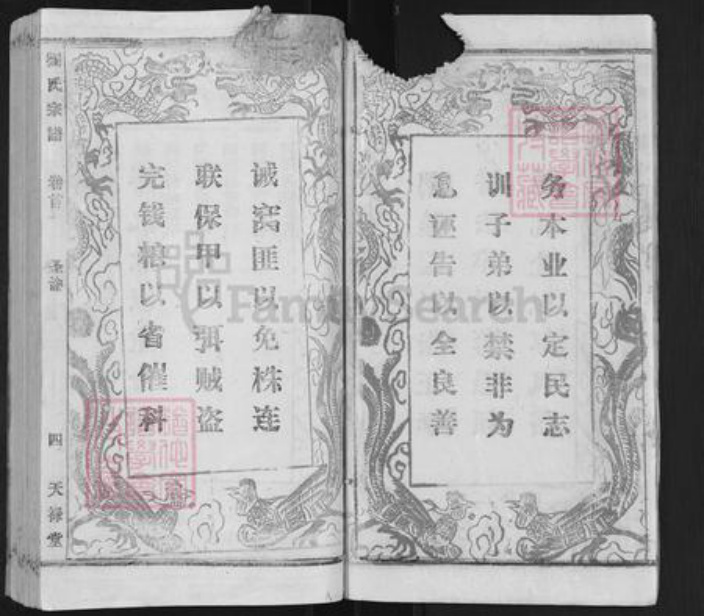 务本业以定民志
训子弟以禁非为
息诬告以全良善
诫窝匪以免株连
联保甲以弭贼盗
完钱粮以省催科
氏宗谱 卷首 圣谕 四 天禄堂
FamilySearch